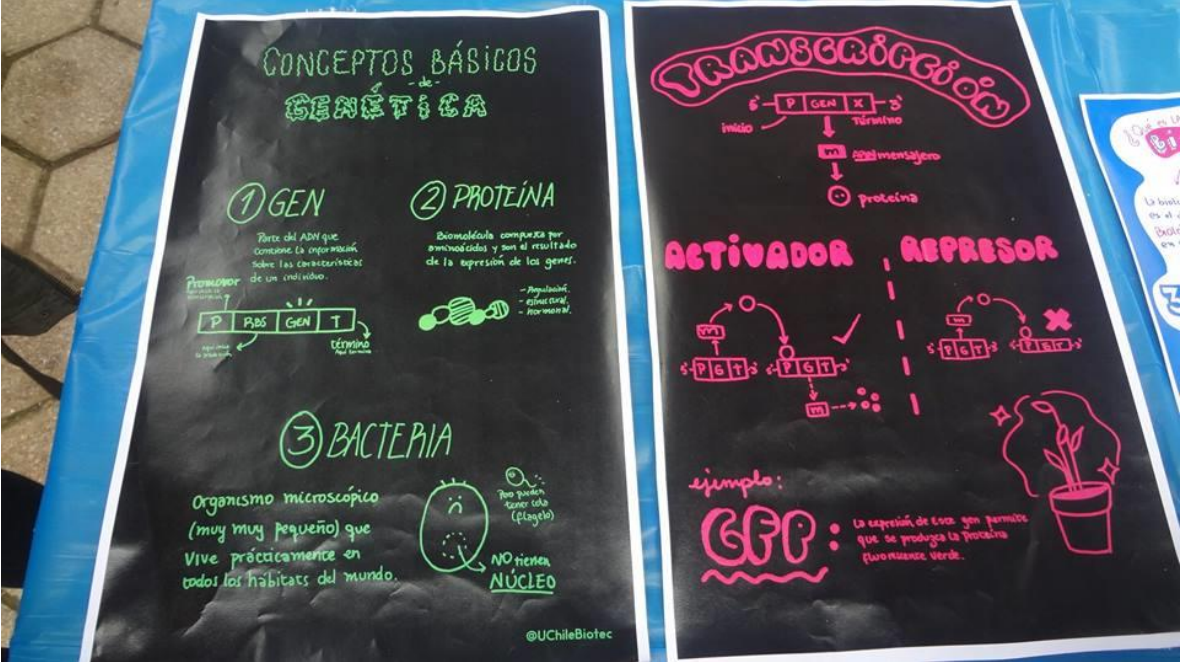 CONCEPTOS BÁSICOS
-de-
GENÉTICA
① GEN
Parte del ADN que
contiene la información
sobre las características
de un individuo.
Promotor
P RBS GEN T
término
Aquí termina
② PROTEÍNA
Biomolécula compuesta por
aminoácidos y son el resultado
de la expresión de los genes.
- Regulación.
- estructural.
- hormonal.
③ BACTERIA
Organismo microscópico
(muy muy pequeño) que
vive prácticamente en
todos los hábitats del mundo.
Pero pueden
tener cola
(flagelo)
NO tienen
NÚCLEO
@UChileBiotec
TRANSCRIPCIÓN
5'- P GEN X -3'
inicio
término
m ARN mensajero
proteína
ACTIVADOR
m
5'- P G T -3'
5'- P G T -3'
m
REPRESOR
m
5'- P G T -3'
5'- P G T -3'
ejemplo:
GFP:
La expresión de este gen permite
que se produzca la proteína
fluorescente verde.
¿Qué es
es el
en
3